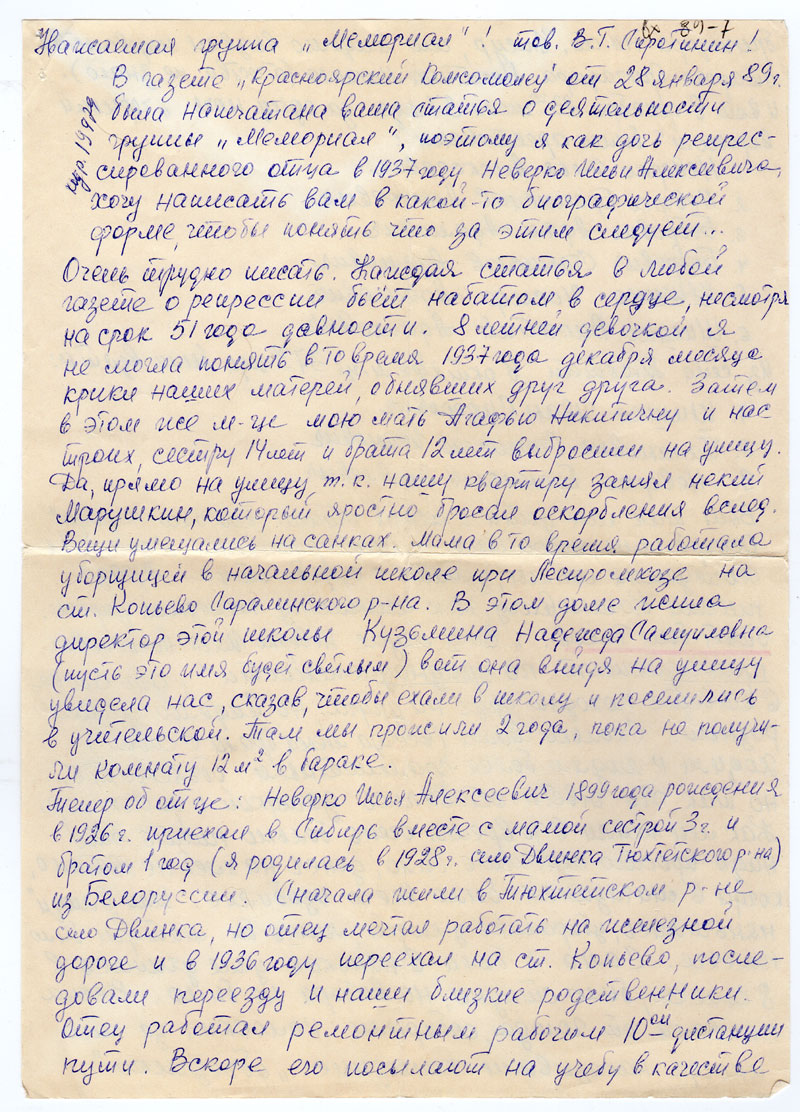 вх 89-7
Уважаемая группа „Мемориал"! тов. В.Г. Сиротинин!
В газете „Красноярский Комсомолец" от 28 января 89 г.
была напечатана ваша статья о деятельности
группы „Мемориал", поэтому я как дочь репрес-
сированного отца в 1937 году Неверко Ильи Алексеевича,
хочу написать вам в какой-то биографической
форме, чтобы понять что за этим следует...
Очень трудно писать. Каждая статья в любой
газете о репрессии бьёт набатом в сердце, несмотря
на срок 51 года давности. 8 летней девочкой я
не могла понять в то время 1937 года декабря месяца
крики наших матерей, обнявших друг друга. Затем
в этом же м-це мою мать Агафью Никитичну и нас
троих, сестру 14 лет и брата 12 лет выбросили на улицу.
Да, прямо на улицу т.к. нашу квартиру занял некий
Марушкин, который яростно бросал оскорбления вслед.
Вещи умещались на санках. Мама в то время работала
уборщицей в начальной школе при Леспромхозе на
ст. Копьево Саралинского р-на. В этом доме жила
директор этой школы Кузьмина Надежда Самуиловна
(пусть это имя будет светлым) вот она выйдя на улицу
увидела нас, сказав, чтобы ехали в школу и поселились
в учительской. Там мы прожили 2 года, пока не получи-
ли комнату 12 м² в бараке.
Тепер об отце: Неверко Илья Алексеевич 1899 года рождения
в 1926 г. приехал в Сибирь вместе с мамой сестрой 3 г. и
братом 1 год (я родилась в 1928 г. село Двинка Тюхтетского р-на)
из Белоруссии. Сначала жили в Тюхтетском р-не
село Двинка, но отец мечтал работать на железной
дороге и в 1936 году переехал на ст. Копьево, после-
довали переезду и наши близкие родственники.
Отец работал ремонтным рабочим 10ой дистанции
пути. Вскоре его посылают на учебу в качестве